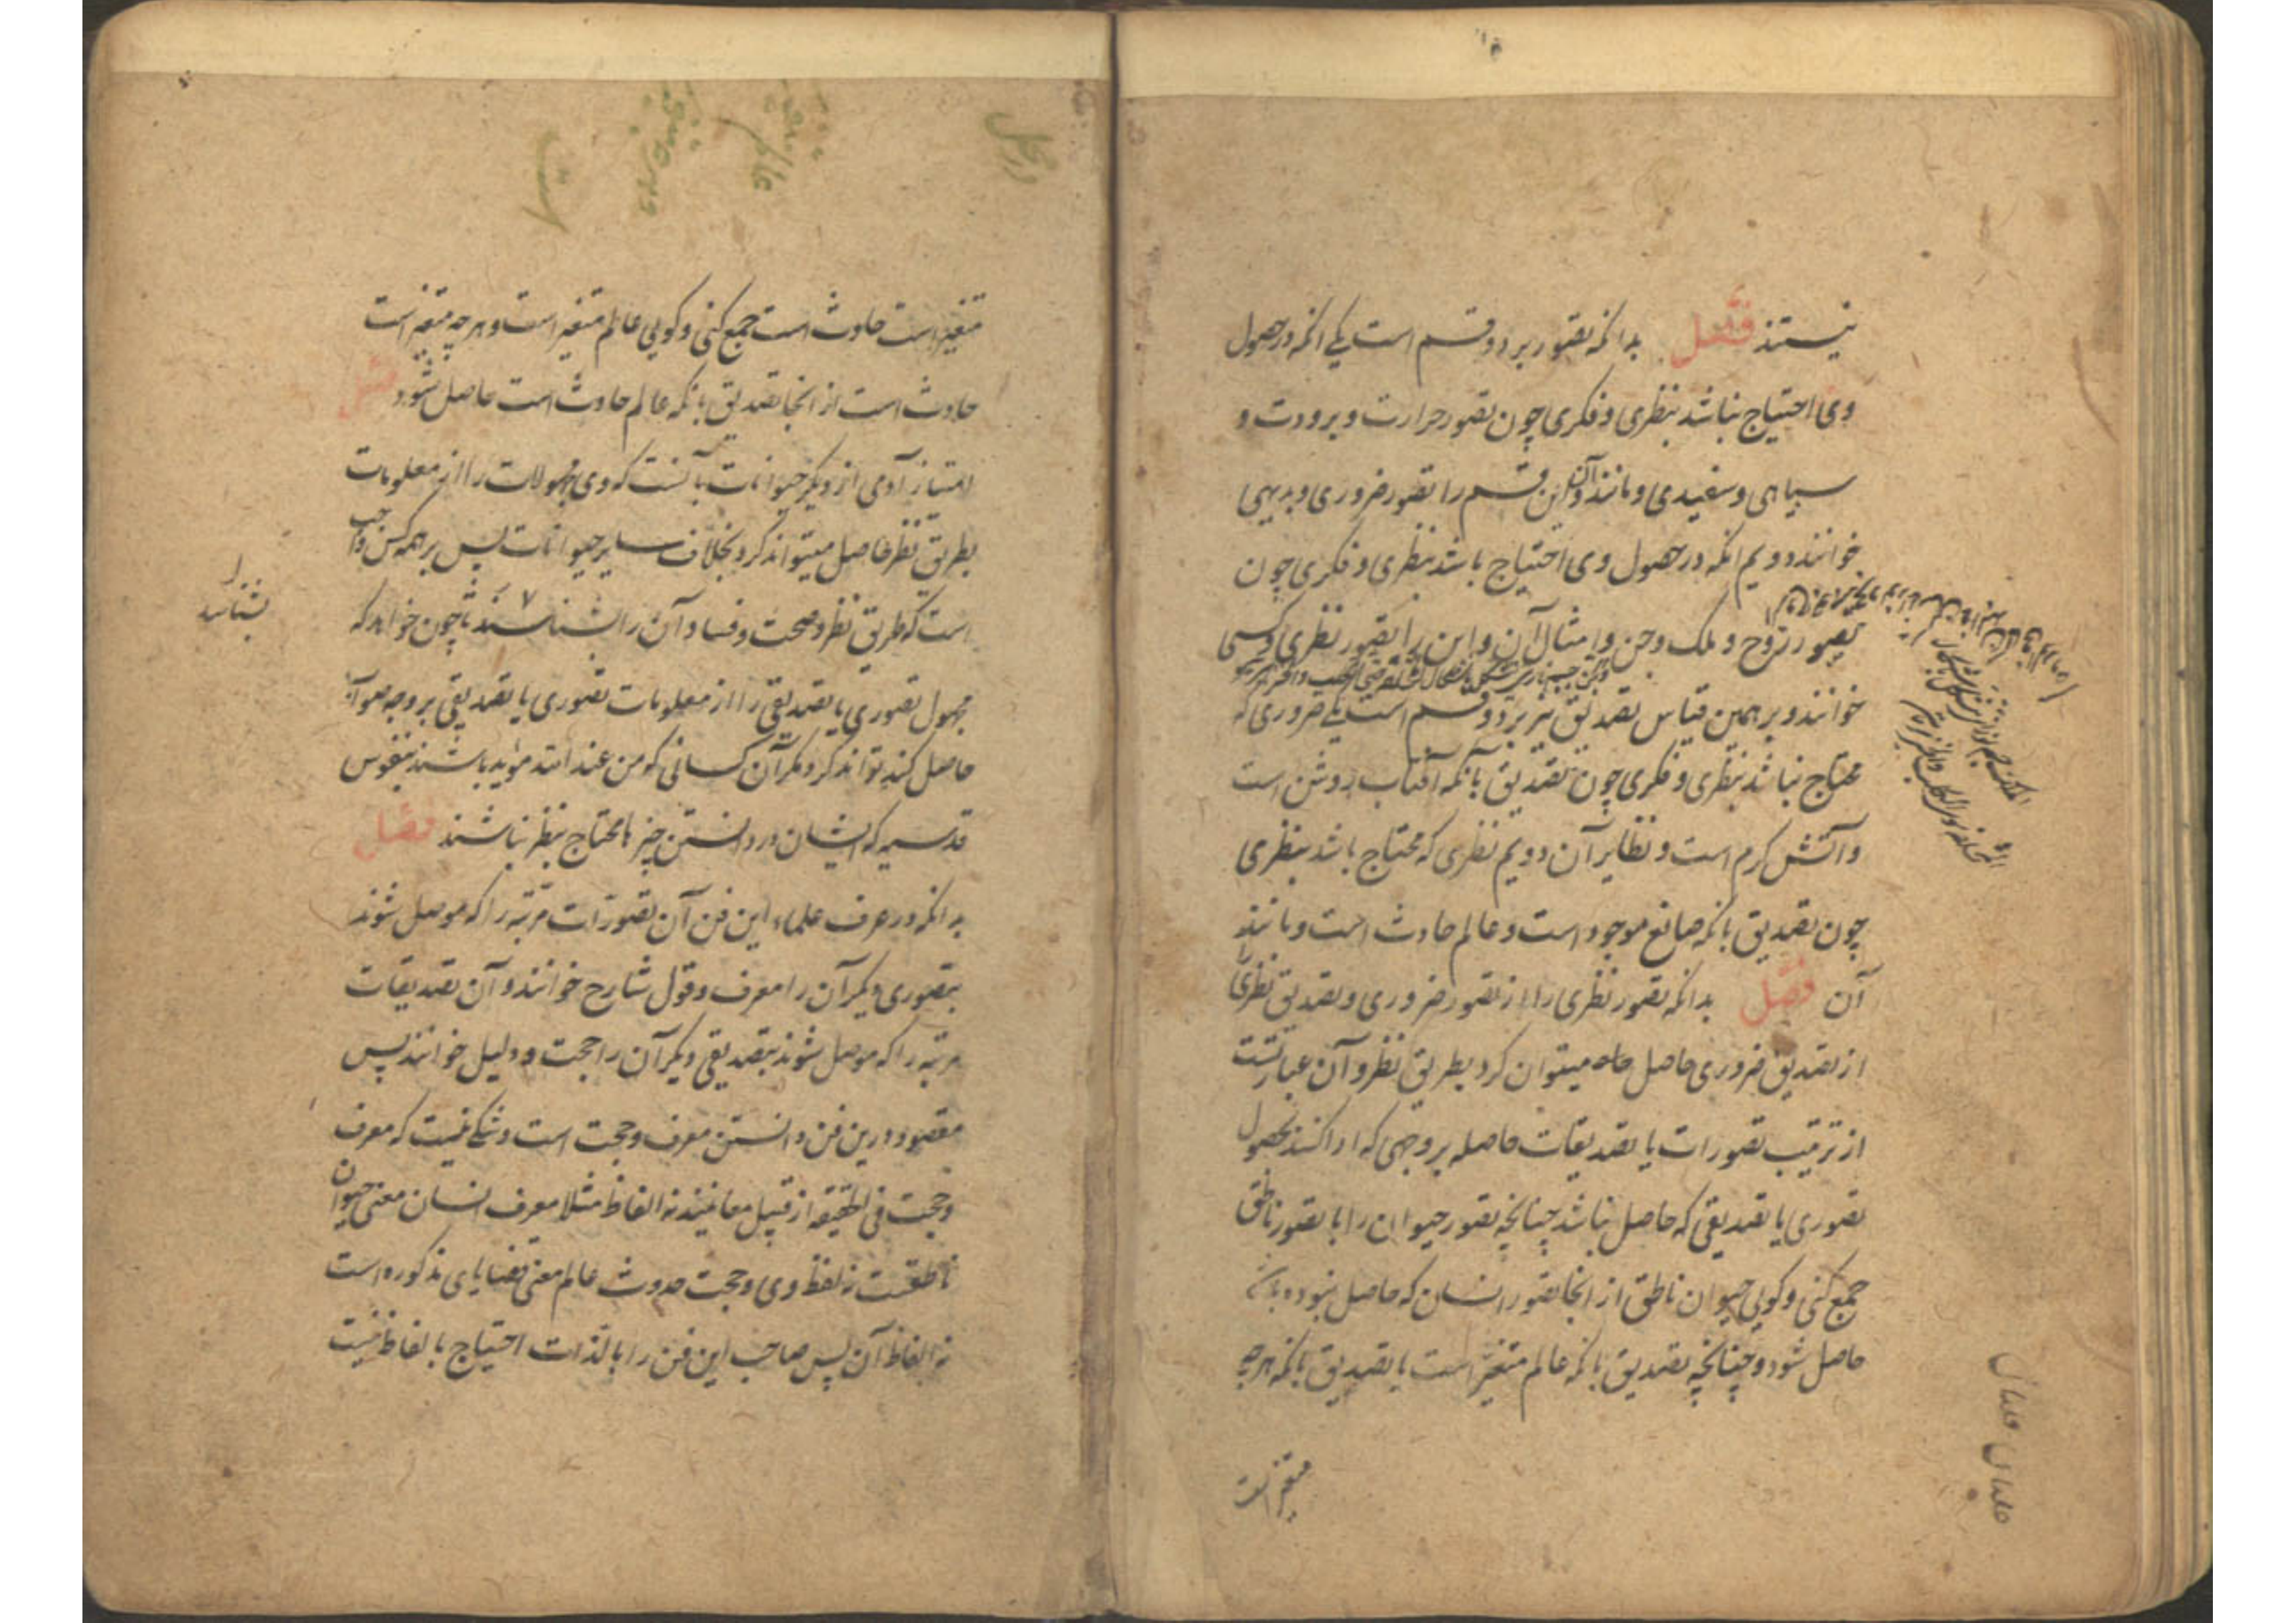 نیستند فصل بدانکه تصور بر دو قسم است یکی انکه در حصول
وی احتیاج نباشد بنظری و فکری چون تصور حرارت و برودت و
سیاهی و سفیدی و مانند آن و این قسم را تصور ضروری و بدیهی
خوانند دویم انکه در حصول وی احتیاج باشد بنظری و فکری چون
تصور روح و ملک و جن و امثال آن و این را تصور نظری و کسبی
خوانند و بر همین قیاس تصدیق نیز بر دو قسم است یکی ضروری که
محتاج نباشد بنظری و فکری چون تصدیق بانکه آفتاب روشن است
و آتش کرم است و نظایر آن دویم نظری که محتاج باشد بنظری
چون تصدیق بانکه صانع موجود است و عالم حادث است و مانند
آن فصل بدانکه تصور نظری را از تصور ضروری و تصدیق نظری را
از تصدیق ضروری حاصل میتوان کرد بطریق نظر و آن عبارتست
از ترتیب تصورات یا تصدیقات حاصله بر وجهی که ادا کند بحصول
تصوری یا تصدیقی که حاصل نباشد چنانچه تصور حیوان را با تصور ناطق
جمع کنی و کویی حیوان ناطق از انجا تصور انسان که حاصل نبوده باشد
حاصل شود و چنانچه تصدیق بانکه عالم متغیر است با تصدیق بانکه هرچه
متغیر است
متغیر است حادث است جمع کنی و کویی عالم متغیر است و هرچه متغیر است
حادث است از انجا تصدیق بانکه عالم حادث است حاصل شود فصل
امتیاز آدمی از دیکر حیوانات بآنست که وی مجهولات را از معلومات
بطریق نظر حاصل میتواند کرد بخلاف سایر حیوانات پس بر همه کس واجب
است که طریق نظر و صحت و فساد آن را بشناسند تا چون خواهد که
بشناسد
مجهول تصوری یا تصدیقی را از معلومات تصوری یا تصدیقی بر وجه صواب
حاصل کند تواند کرد مکر آن کسانی کو من عند الله مؤید باشند بنفوس
قدسیه که ایشان در دانستن چیزها محتاج بنظر نباشند فصل
بدانکه در عرف علماء این فن آن تصورات مرتبه را که موصل شوند
بتصوری دیکر آن را معرف و قول شارح خوانند و آن تصدیقات
مرتبه را که موصل شوند بتصدیقی دیکر آن را حجت و دلیل خوانند پس
مقصود درین فن دانستن معرف و حجت است و شکی نیست که معرف
و حجت فی الحقیقه از قبیل معانیند نه الفاظ مثلا معرف انسان معنی حیوان
ناطقست نه لفظ وی و حجت حدوث عالم معنی قضایای مذکوره است
نه الفاظ آن پس صاحب این فن را بالذات احتیاج بالفاظ نیست